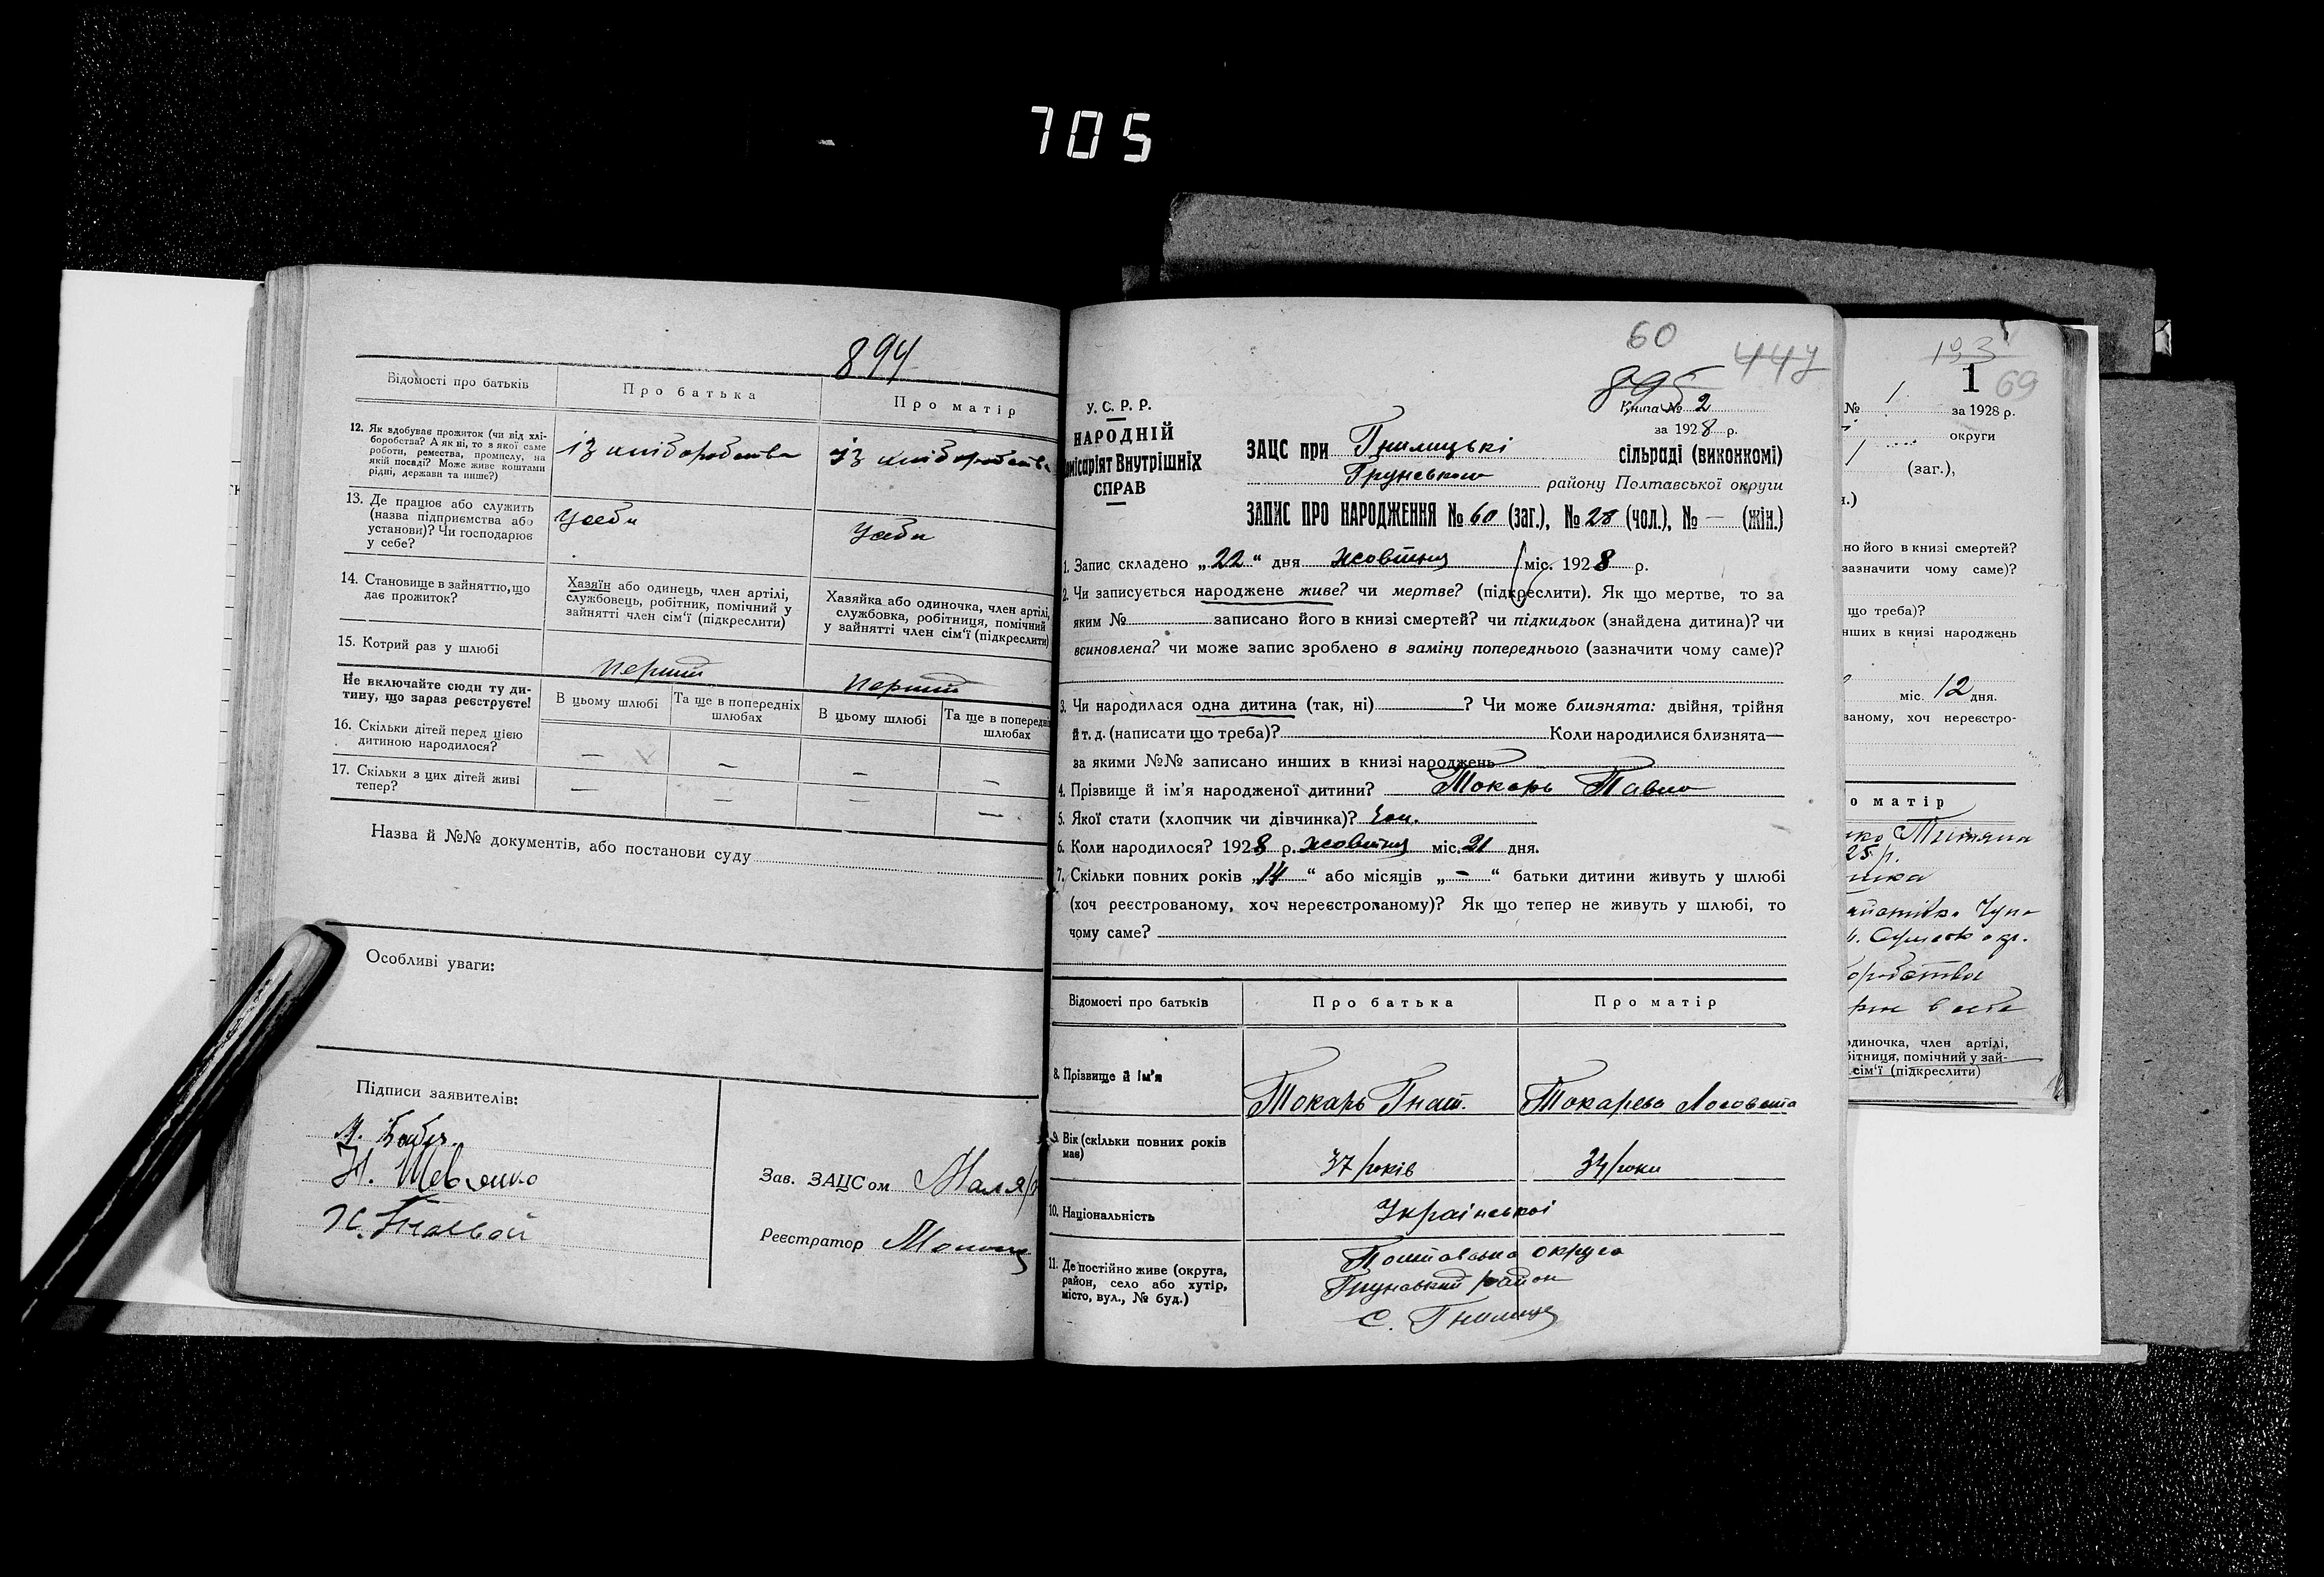 705
894
Відомості про батьків
Про батька
Про матір
12. Як здобуває прожиток (чи від хлі-
боробства? А як ні, то з якої саме
роботи, ремества, промислу, на
якій посаді? Може живе коштами
рідні, держави та инше?)
із хліборобства
із хліборобства
13. Де працює або служить
(назва підприємства або
установи)? Чи господарює
у себе?
у себи
у себи
14. Становище в зайняттю, що
дає прожиток?
Хазяїн або одинець, член артілі,
службовець, робітник, помічний у
зайнятті член сім'ї (підкреслити)
Хазяйка або одиночка, член артілі,
службовка, робітниця, помічний
у зайнятті член сім'ї (підкреслити)
15. Котрий раз у шлюбі
перший
перший
Не включайте сюди ту ди-
тину, що зараз реєструєте!
В цьому шлюбі
Та ще в попередніх
шлюбах
В цьому шлюбі
Та ще в попередніх
шлюбах
16. Скільки дітей перед цією
дитиною народилося?
— — — —
17. Скільки з цих дітей живі
тепер?
— — — —
Назва й №№ документів, або постанови суду
Особливі уваги:
Підписи заявителів:
Н. Шевченко
Зав. ЗАЦСом Маля
Реєстратор
60
447
895
У. С. Р. Р.
НАРОДНІЙ
омісаріят Внутрішніх
СПРАВ
Книга № 2
за 1928 р.
ЗАЦС при Гнилицькі сільраді (виконкомі)
Грунського району Полтавської округи
ЗАПИС ПРО НАРОДЖЕННЯ № 60 (заг.), № 28 (чол.), № — (жін.)
1. Запис складено „22“ дня жовтня міс. 1928 р.
2. Чи записується народжене живе? чи мертве? (підкреслити). Як що мертве, то за
яким № записано його в книзі смертей? чи підкидьок (знайдена дитина)? чи
всиновлена? чи може запис зроблено в заміну попереднього (зазначити чому саме)?
3. Чи народилася одна дитина (так, ні) ? Чи може близнята: двійня, трійня
й т. д. (написати що треба)? Коли народилися близнята—
за якими №№ записано инших в книзі народжень
4. Прізвище й ім'я народженої дитини? Токарь Павло
5. Якої стати (хлопчик чи дівчинка)? Чол.
6. Коли народилося? 1928 р. жовтня міс. 21 дня.
7. Скільки повних років „14“ або місяців „-“ батьки дитини живуть у шлюбі
(хоч реєстрованому, хоч нереєстрованому)? Як що тепер не живуть у шлюбі, то
чому саме?
Відомості про батьків
Про батька
Про матір
8. Прізвище й ім'я
Токарь Гнат.
Токарева
9. Вік (скільки повних років
має)
37 років
34 роки
10. Національність
Української
11. Де постійно живе (округа,
район, село або хутір,
місто, вул., № буд.)
Полтавська округа
Грунський район
с. Гнилиця
193
1
69
№ 1. за 1928 р.
округи
(заг.),
но його в книзі смертей?
зазначити чому саме)?
що треба)?
нших в книзі народжень
міс. 12 дня.
ваному, хоч нереєстро-
о матір
Титяна
25 р.
оробства
одиночка, член артілі,
бітниця, помічний у зай-
сім'ї (підкреслити)